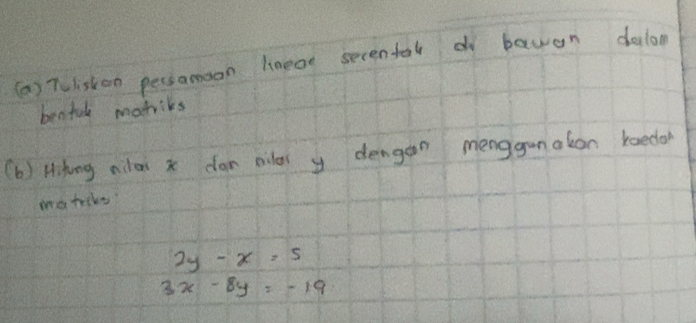 (a) Tuliskan persamaan linear serentak di bawah dalam
bentuk matriks
(b) Hitung nilai x dan nilai y dengan menggunakan kaedah
matriks
2y - x = 5
3x - 8y = -19